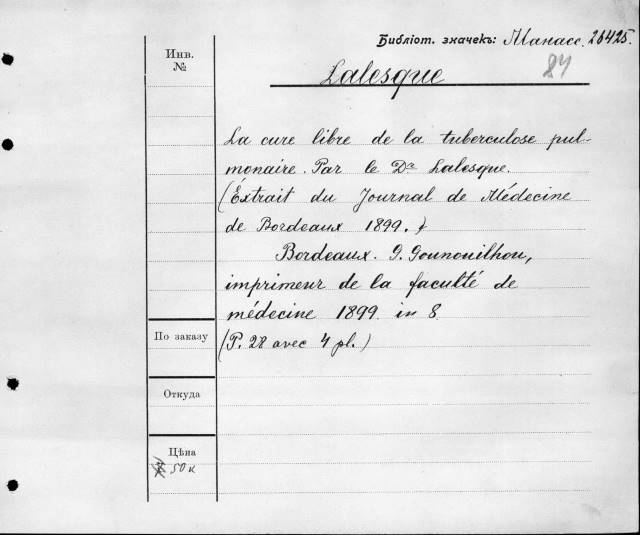 Библіот. значекъ: Манасс. 26425.
84
Инв.
№
Lalesque
La cure libre de la tuberculose pul-
monaire. Par le Dr Lalesque.
(Extrait du Journal de Médecine
de Bordeaux 1899.)
Bordeaux. G. Gounouilhou,
imprimeur de la faculté de
médecine 1899 in 8
(P. 28 avec 4 pl.)
По заказу
Откуда
Цѣна
50 к